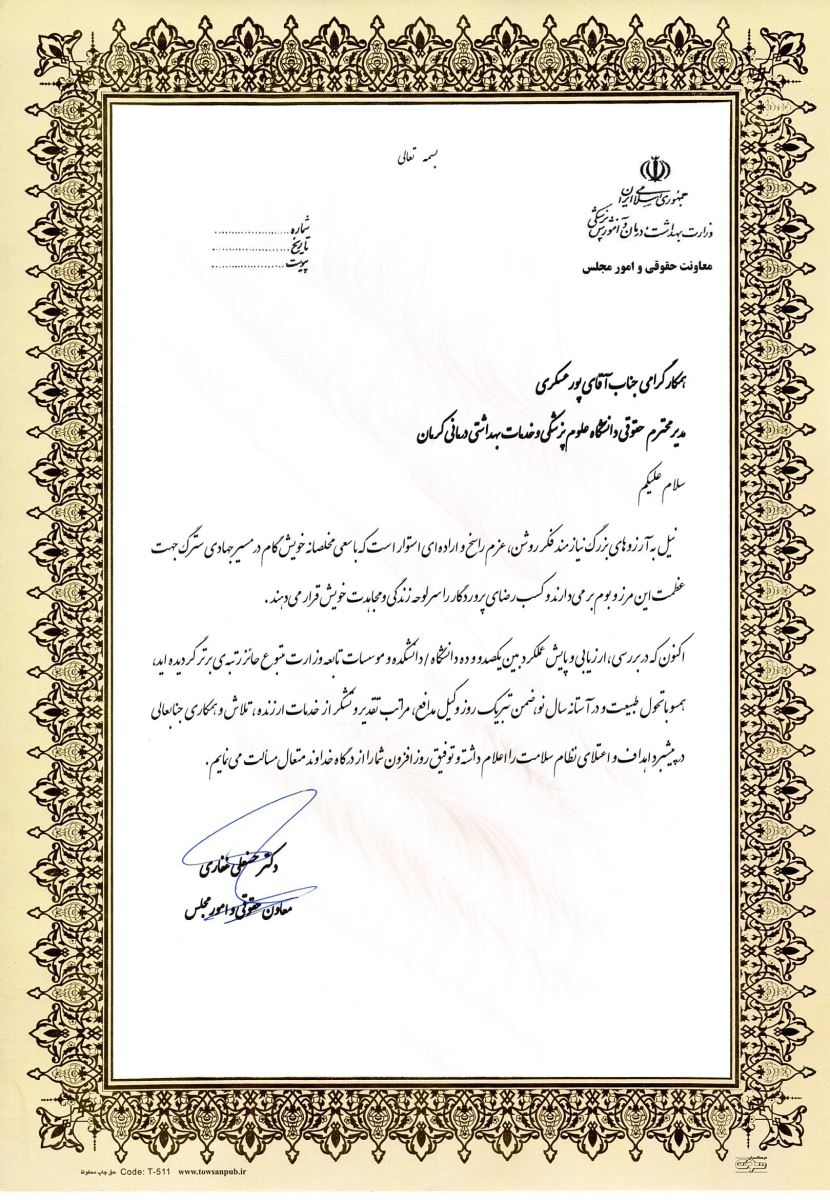 بسمه تعالی
جمهوری اسلامی ایران
وزارت بهداشت، درمان و آموزش پزشکی
معاونت حقوقی و امور مجلس
شماره....................
تاریخ....................
پیوست....................
همکار گرامی جناب آقای پور عسکری
مدیر محترم حقوقی دانشگاه علوم پزشکی و خدمات بهداشتی درمانی کرمان
سلام علیکم
نیل به آرزوهای بزرگ نیازمند فکر روشن، عزم راسخ و اراده ای استوار است که با سعی مخلصانه خویش گام در مسیر جهادی سترگ جهت
عظمت این مرز و بوم بر می دارند و کسب رضای پروردگار را سرلوحه زندگی و مجاهدت خویش قرار می دهند.
اکنون که در بررسی، ارزیابی و پایش عملکرد بین یکصد و ده دانشگاه / دانشکده و موسسات تابعه وزارت متبوع حائز رتبه ی برتر گردیده اید،
همسو با تحول طبیعت و در آستانه سال نو، ضمن تبریک روز وکیل مدافع، مراتب تقدیر و تشکر از خدمات ارزنده، تلاش و همکاری جنابعالی
در پیشبرد اهداف و اعتلای نظام سلامت را اعلام داشته و توفیق روز افزون شما را از درگاه خداوند متعال مسالت می نمایم.
دکتر حسنعلی غفاری
معاون حقوقی و امور مجلس
حق چاپ محفوظ Code: T-511 www.towsanpub.ir